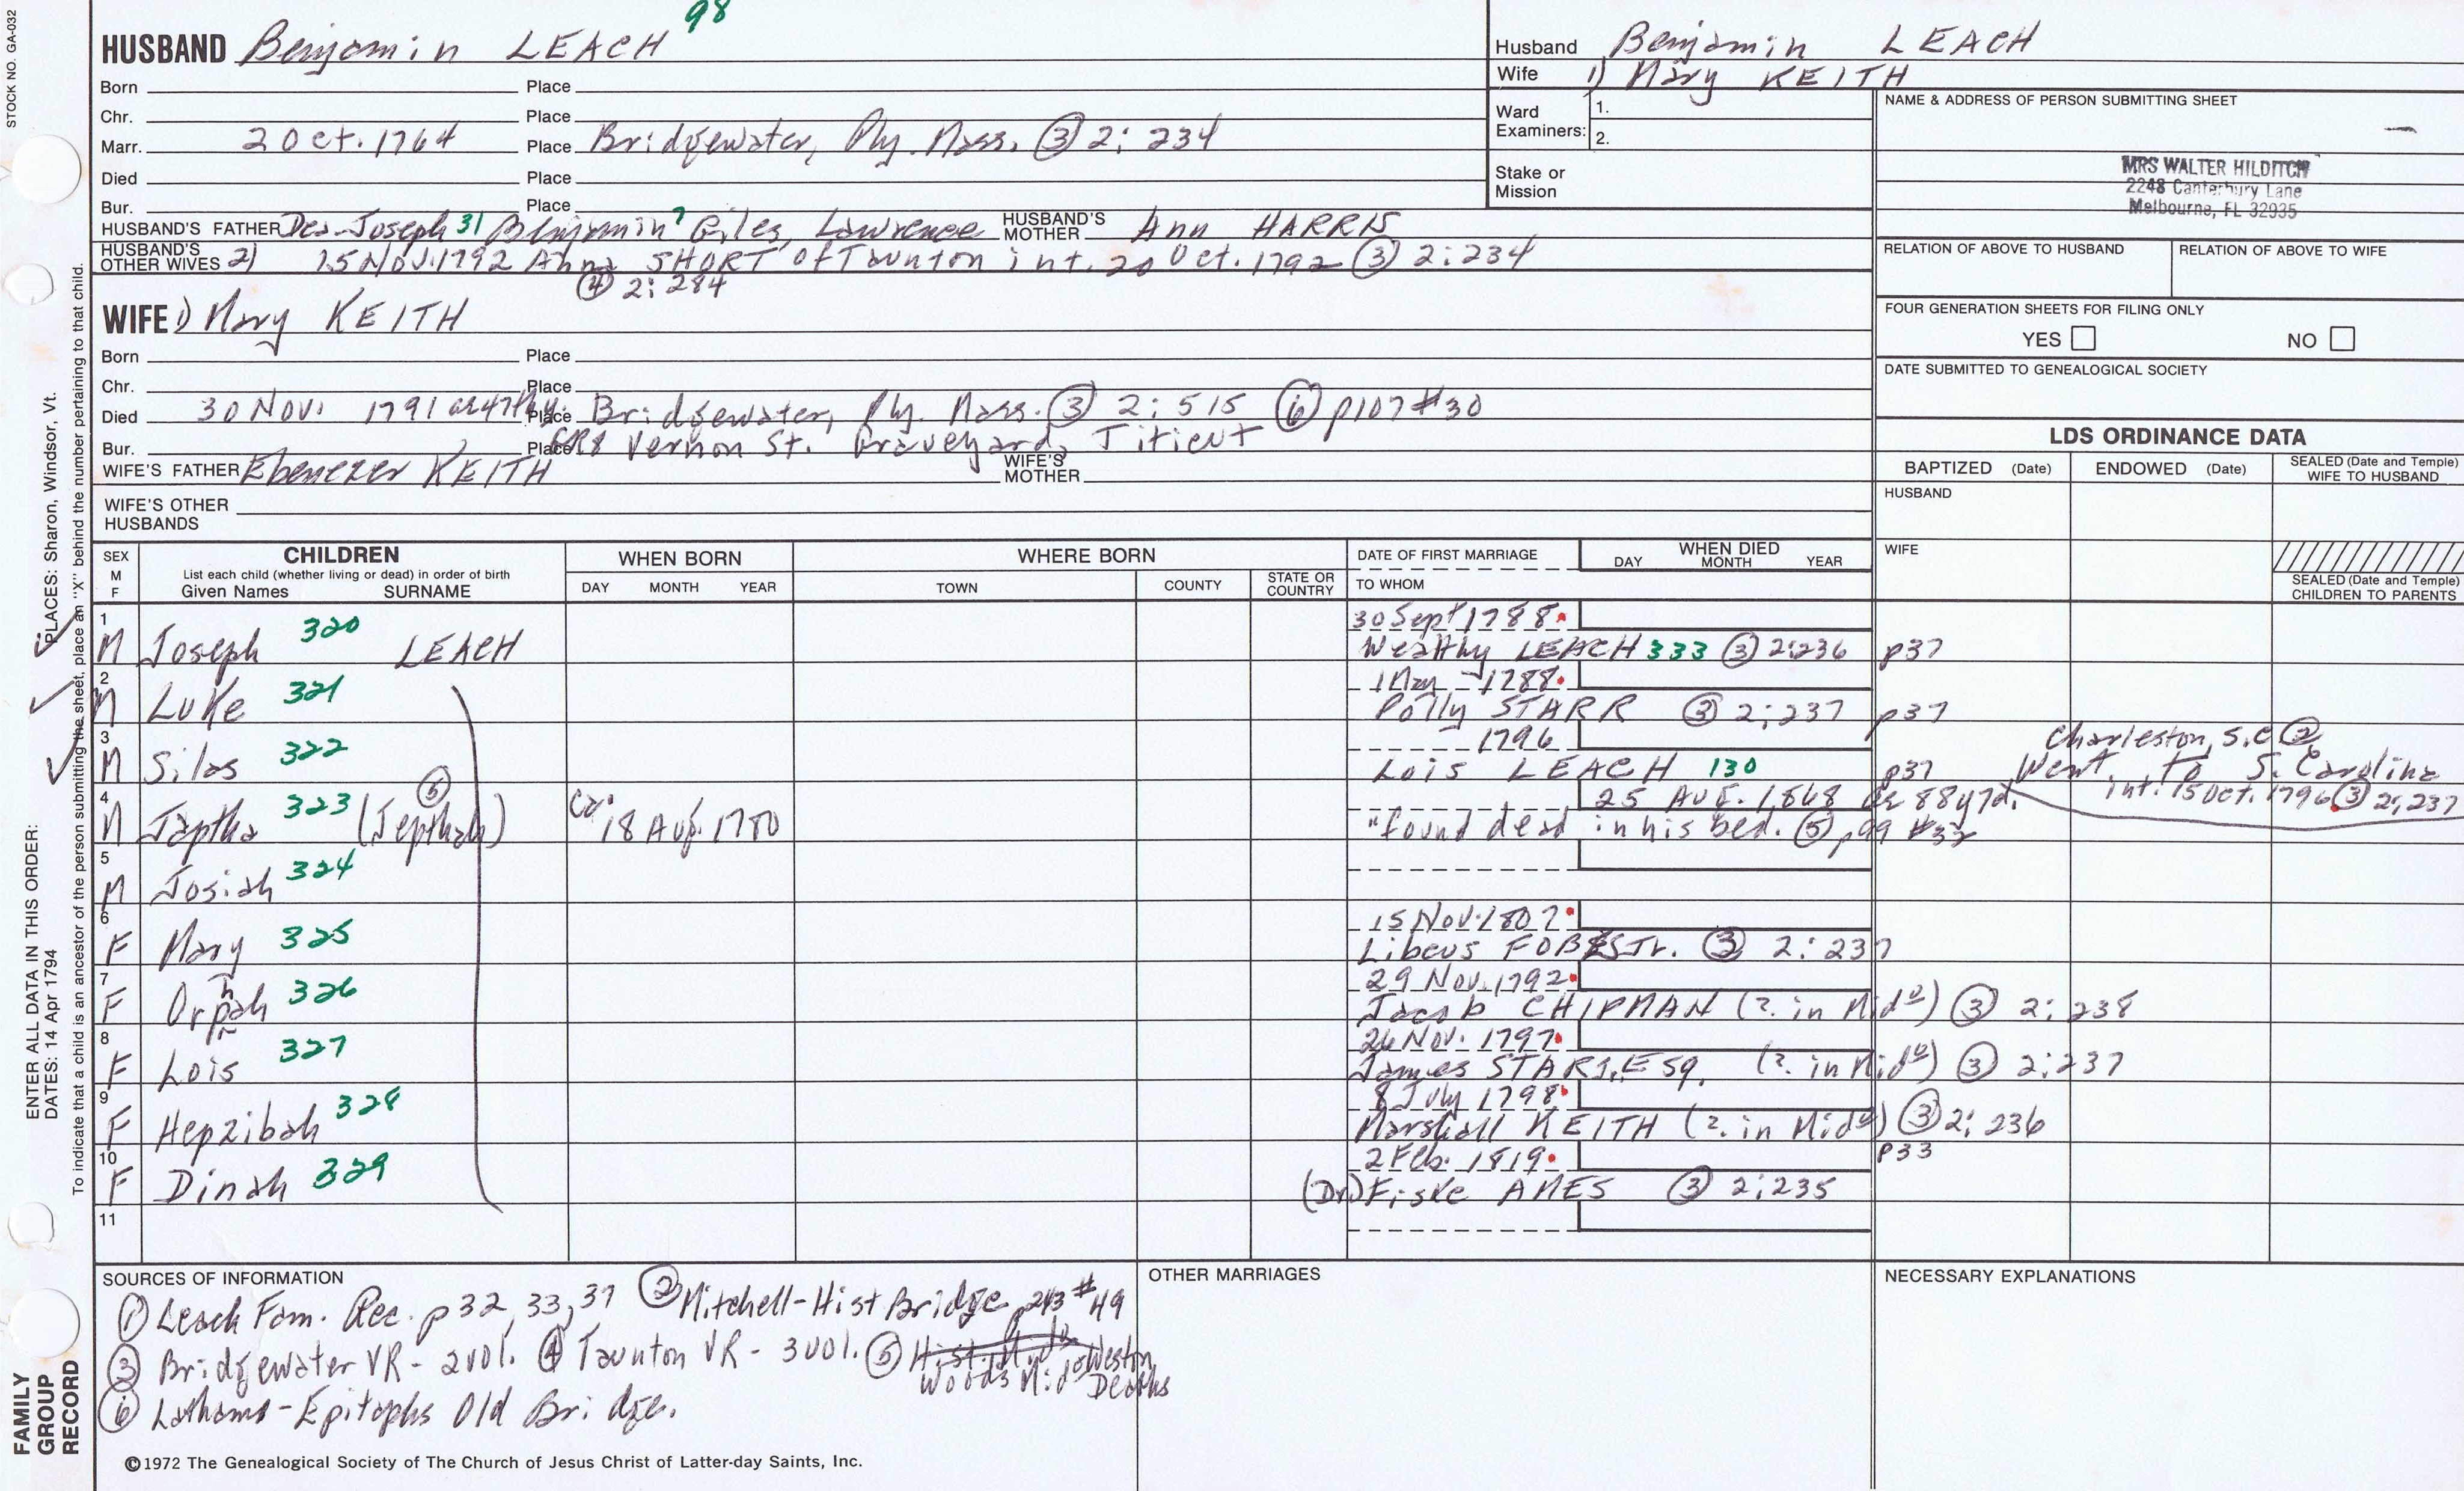 STOCK NO. GA-032
98
HUSBAND Benjamin LEACH
Born Place
Chr. Place
Marr. 2 Oct. 1764 Place Bridgewater, Ply. Mass. ③ 2: 234
Died Place
Bur. Place
HUSBAND'S FATHER Dea. Joseph 31 Benjamin 7 Giles, Lawrence HUSBAND'S MOTHER Ann HARRIS
HUSBAND'S OTHER WIVES 2) 15 Nov. 1792 Anna SHORT of Taunton int. 20 Oct. 1792 ③ 2:234
④ 2: 284
WIFE 1) Mary KEITH
Born Place
Chr. Place
Died 30 Nov. 1791 Place Bridgewater, Ply. Mass. ③ 2: 515 ⑥ p107 #30
Bur. Place Vernon St. Graveyard, Titicut
WIFE'S FATHER Ebenezer KEITH WIFE'S MOTHER
WIFE'S OTHER HUSBANDS
Husband Benjamin LEACH
Wife 1) Mary KEITH
Ward Examiners: 1.
2.
Stake or Mission
NAME & ADDRESS OF PERSON SUBMITTING SHEET
MRS WALTER HILDITCH
2248 Canterbury Lane
Melbourne, FL 32935
RELATION OF ABOVE TO HUSBAND RELATION OF ABOVE TO WIFE
FOUR GENERATION SHEETS FOR FILING ONLY
YES NO
DATE SUBMITTED TO GENEALOGICAL SOCIETY
LDS ORDINANCE DATA
BAPTIZED (Date) ENDOWED (Date) SEALED (Date and Temple) WIFE TO HUSBAND
HUSBAND
WIFE
SEALED (Date and Temple) CHILDREN TO PARENTS
SEX M F
CHILDREN
List each child (whether living or dead) in order of birth
Given Names SURNAME
WHEN BORN
DAY MONTH YEAR
WHERE BORN
TOWN COUNTY STATE OR COUNTRY
DATE OF FIRST MARRIAGE
TO WHOM
WHEN DIED
DAY MONTH YEAR
1 30 Sept 1788
M Joseph 320 LEACH Wealthy LEACH 333 ③ 2:236 p37
2 1 May 1788
M Luke 321 Polly STARR ③ 2:237 p37
3 1796 Charleston, S.C ②
M Silas 322 Lois LEACH 130 p37 Went to S. Carolina
int. 15 Oct. 1796 ③ 2:237
4 25 Aug. 1868 ae 88y7d.
M Japtha 323 (Jepthah) ⑤ ca. 18 Aug. 1780 "found dead in his bed. ⑤ p99 #32
5
M Josiah 324
6 15 Nov. 1807
F Mary 325 Libeus FOBES Jr. ③ 2:237
7 29 Nov. 1792
F Orpah 326 Jacob CHIPMAN (2. in Mido) ③ 2: 238
8 26 Nov. 1797
F Lois 327 James STARR, Esq. (2. in Mido) ③ 2:237
9 8 July 1798
F Hepzibah 328 Marshall KEITH (2. in Mido) ③ 2: 236
10 2 Feb. 1819 p33
F Dinah 329 (Dr) Fiske AMES ③ 2:235
11
SOURCES OF INFORMATION
① Leach Fam. Rec. p 32, 33, 37 ② Mitchell-Hist Bridge p243 #49
③ Bridgewater VR - 2 vol. ④ Taunton VR - 3 vol. ⑤
Woods Mido Weston Deaths
⑥ Lathams - Epitaphs Old Bridge.
OTHER MARRIAGES
NECESSARY EXPLANATIONS
©1972 The Genealogical Society of The Church of Jesus Christ of Latter-day Saints, Inc.
ENTER ALL DATA IN THIS ORDER:
DATES: 14 Apr 1794
PLACES: Sharon, Windsor, Vt.
To indicate that a child is an ancestor of the person submitting the sheet, place an "X" behind the number pertaining to that child.
FAMILY GROUP RECORD